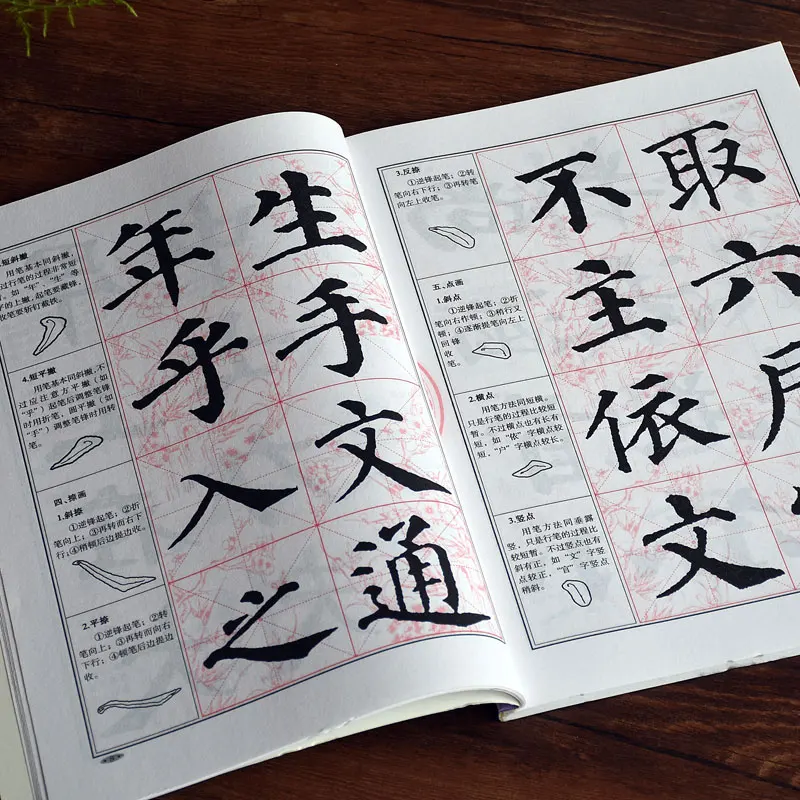 短斜撇
用笔基本同斜撇,
过行笔的过程非常短
。如“年”、“生”等
字的上撇,起笔要藏锋,
收笔要斩钉截铁。
4.短平撇
用笔基本同斜撇,不
过应注意方平撇(如
“乎”)起笔后调整笔锋
时用折笔,圆平撇(如
“手”)调整笔锋时用转
笔。
四、捺画
1.斜捺
①逆锋起笔;②折
笔向上;③再转而右下
行;④稍顿后边提边收。
2.平捺
①逆锋起笔;②转
笔向上;③再转而向右
下行;④顿笔后边提边
收。
年 生
乎 手
入 文
之 通
3.反捺
①逆锋起笔;②转
笔向右下行;③再转笔
向左上收笔。
五、点画
1.斜点
①逆锋起笔;②折
笔向右作顿;③稍行又
顿;④逐渐提笔向左上
回锋
收
笔。
2.横点
用笔方法同短横。
只是行笔的过程比较短
暂。不过横点也有长有
短,如“依”字横点较
短,“户”字横点较长。
3.竖点
用笔方法同垂露
竖,只是行笔的过程比
较短暂。不过竖点也有
斜有正,如“文”字竖
点较正,“官”字竖点
稍斜。
不 取
主 六
依 户
文